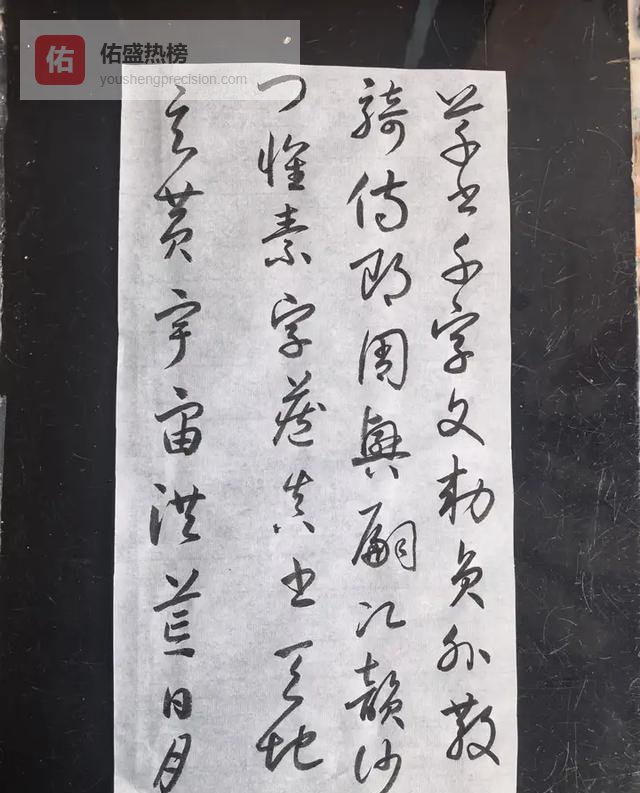 佑
佑盛热榜
youshengprecision.com
草书千字文勅员外散
骑侍郎周兴嗣次韵沙
门怀素字藏真书天地
玄黄宇宙洪荒日月